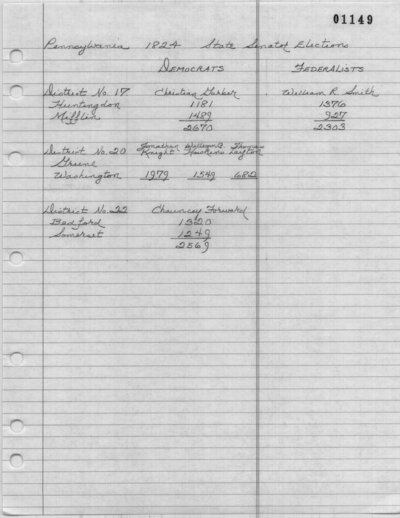 01149
Pennsylvania 1824 State Senator Elections
DEMOCRATS FEDERALISTS
District No. 17 Christian Garber William R. Smith
Huntingdon 1181 1376
Mifflin 1489 927
2670 2303
Jonathan William G. Thomas
District No. 20 Knight Hawkins
Greene
Washington 1979 1549 682
District No. 22 Chauncey Forward
Bedford 1320
Somerset 1249
2569